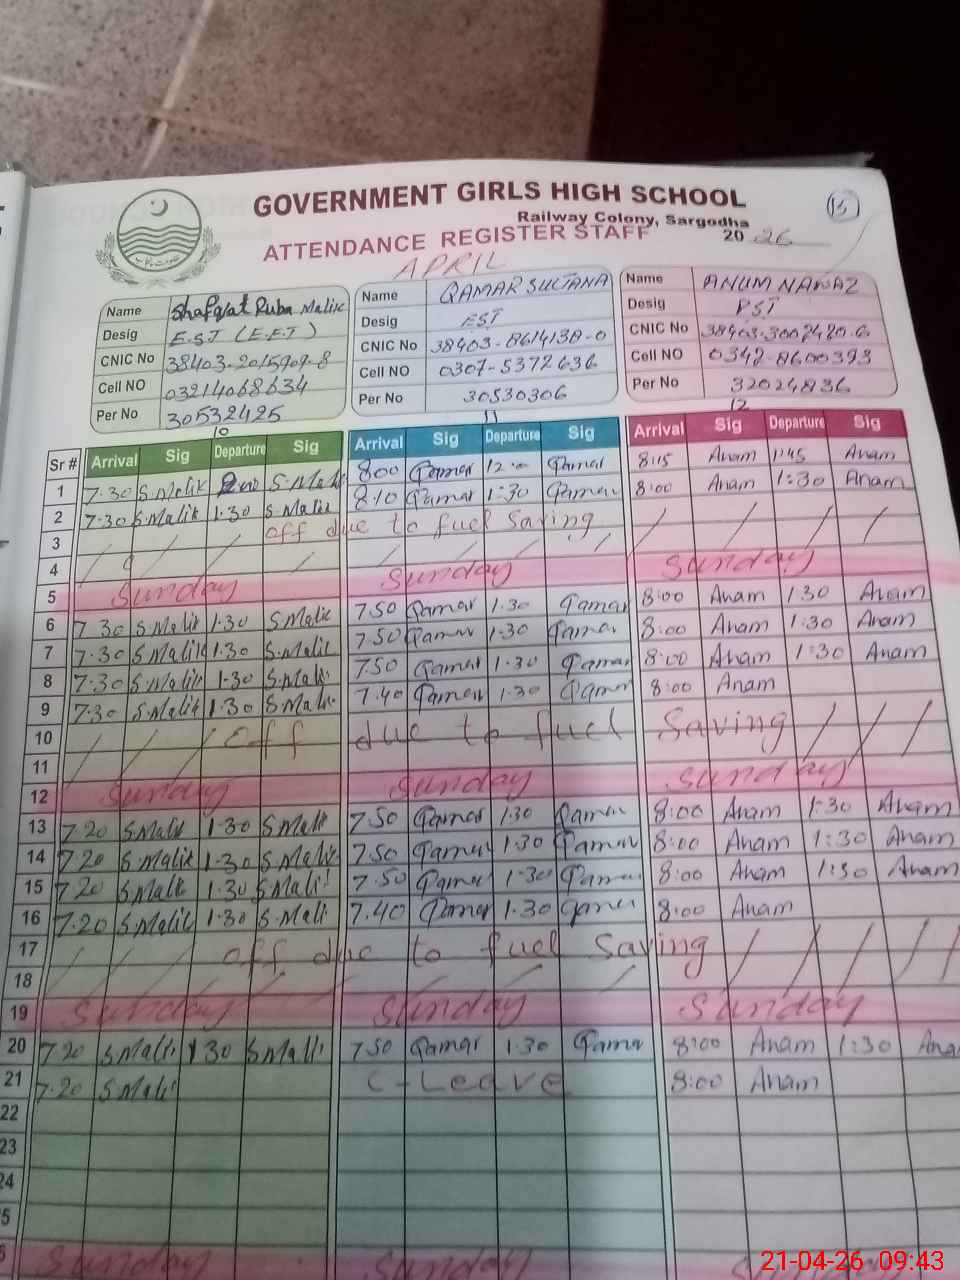 GOVERNMENT GIRLS HIGH SCHOOL
Railway Colony, Sargodha
15
ATTENDANCE REGISTER STAFF
2026
APRIL
Name Shafqat Ruba Malik
Desig E.S.T (E.E.T)
CNIC No 38403-2015909-8
Cell NO 03214068634
Per No 30532425
Name QAMAR SULTANA
Desig EST
CNIC No 38403-8614138-0
Cell NO 0307-5372636
Per No 30530306
Name ANUM NAWAZ
Desig PST
CNIC No 38403-3002420-6
Cell NO 0342-8600393
Per No 32024836
10 11 12
Sr # Arrival Sig Departure Sig Arrival Sig Departure Sig Arrival Sig Departure Sig
1 7.30 S.Malik S.Malik 8:00 Qamar 12:00 Qamar 8:15 Anam 1:45 Anam
2 7.30 S.Malik 1.30 S.Malik 8:10 Qamar 1:30 Qamar 8:00 Anam 1:30 Anam
3 off due to fuel Saving
4
5 Sunday Sunday Sunday
6 7.30 S.Malik 1.30 S.Malik 7.50 Qamar 1.30 Qamar 8:00 Anam 1:30 Anam
7 7.30 S.Malik 1.30 S.Malik 7.50 Qamar 1.30 Qamar 8:00 Anam 1:30 Anam
8 7.30 S.Malik 1.30 S.Malik 7.50 Qamar 1.30 Qamar 8:00 Anam 1:30 Anam
9 7.30 S.Malik 1.30 S.Malik 7.40 Qamar 1.30 Qamar 8:00 Anam
10 off due to fuel Saving
11
12 Sunday Sunday Sunday
13 7.20 S.Malik 1.30 S.Malik 7.50 Qamar 1.30 Qamar 8:00 Anam 1:30 Anam
14 7.20 S.Malik 1.30 S.Malik 7.50 Qamar 1.30 Qamar 8:00 Anam 1:30 Anam
15 7.20 S.Malik 1.30 S.Malik 7.50 Qamar 1.30 Qamar 8:00 Anam 1:30 Anam
16 7.20 S.Malik 1.30 S.Malik 7.40 Qamar 1.30 Qamar 8:00 Anam
17 off due to fuel Saving
18
19 Sunday Sunday Sunday
20 7.20 S.Malik 1.30 S.Malik 7.50 Qamar 1.30 Qamar 8:00 Anam 1:30 Anam
21 7.20 S.Malik C-Leave 8:00 Anam
22
23
24
5
6 Sunday Sunday
21-04-26 09:43